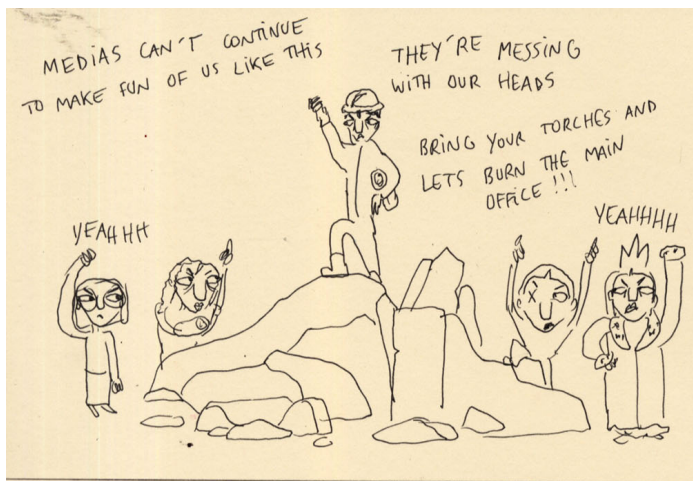 MEDIAS CAN'T CONTINUE
TO MAKE FUN OF US LIKE THIS
THEY'RE MESSING
WITH OUR HEADS
BRING YOUR TORCHES AND
LETS BURN THE MAIN
OFFICE !!!
YEAHHH
YEAHHHH